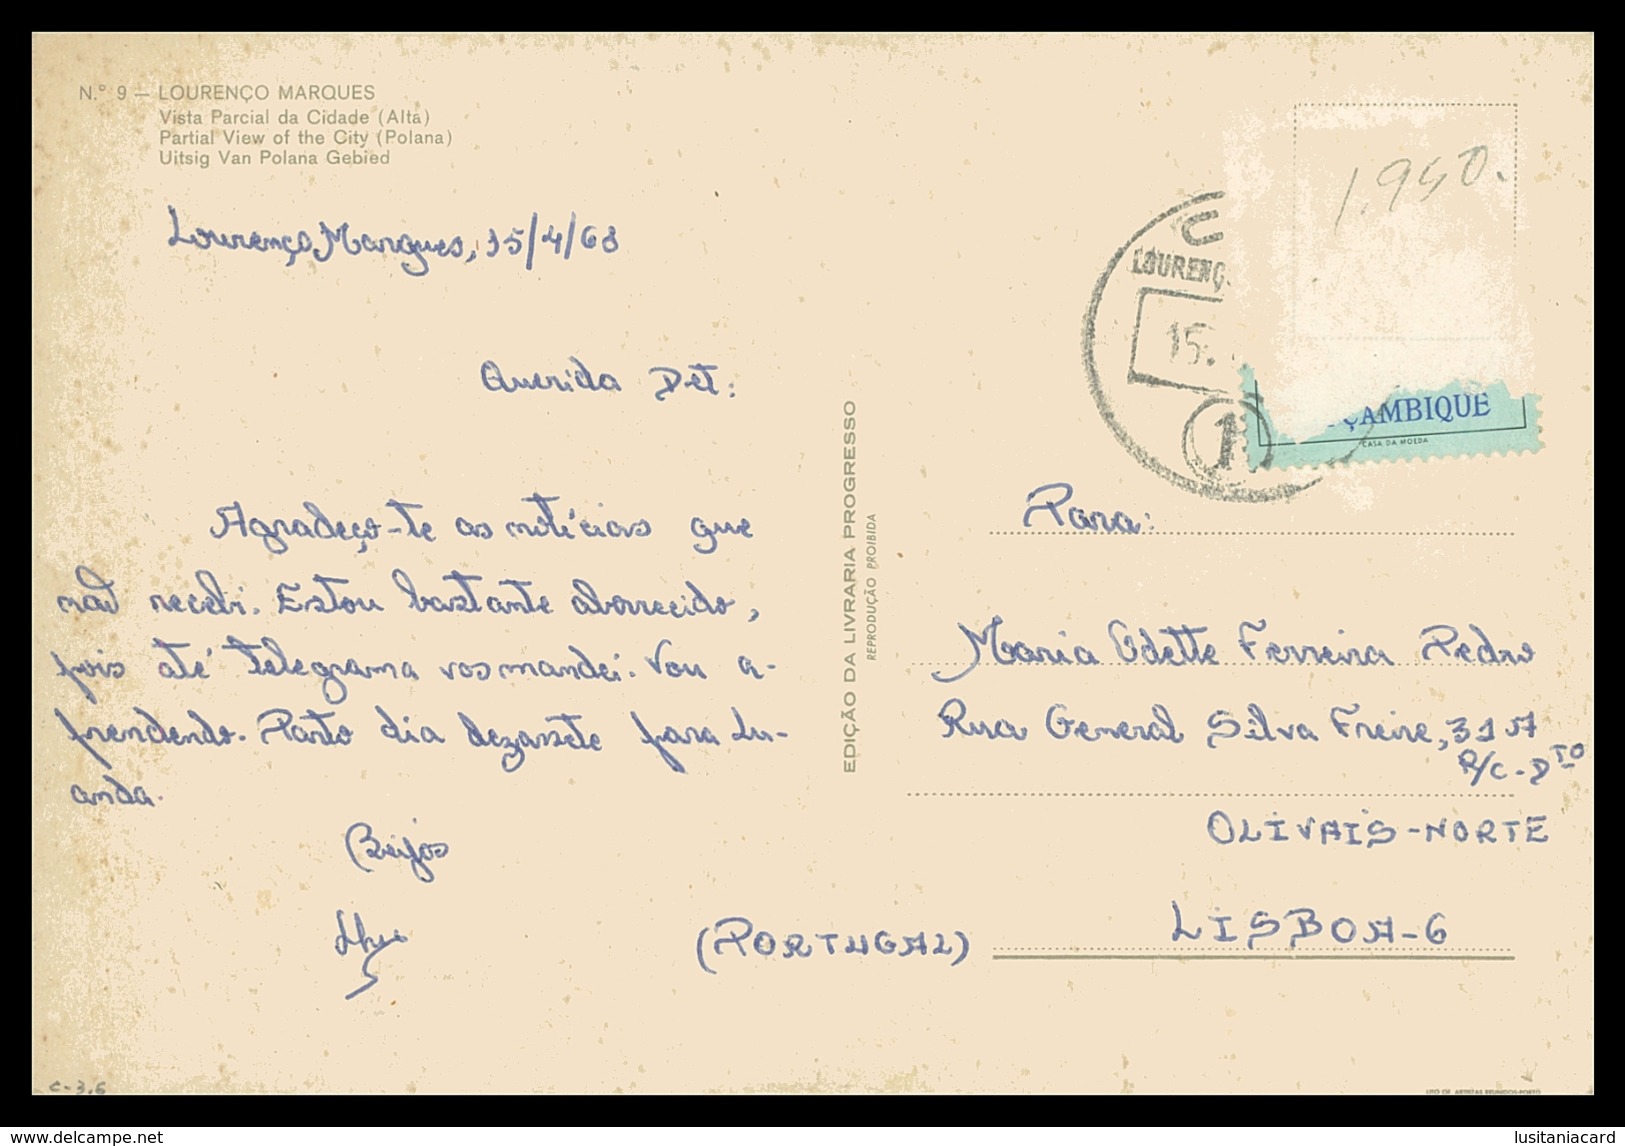 N.º 9 — LOURENÇO MARQUES
Vista Parcial da Cidade (Alta)
Partial View of the City (Polana)
Uitsig Van Polana Gebied
Lourenço Marques, 15/4/68
Querida Det:
Agradeço-te as notícias que
não recebi. Estou bastante aborrecido,
pois até telegrama vos mandei. Vou a-
prendendo. Parto dia dezassete para Lu-
anda.
Beijos
EDIÇÃO DA LIVRARIA PROGRESSO
REPRODUÇÃO PROIBIDA
1.950.
LOURENÇ
15.
1
ÇAMBIQUE
CASA DA MOEDA
Para:
Maria Odette Ferreira Pedro
Rua General Silva Freire, 31 A
R/C-DTO
OLIVAIS-NORTE
LISBOA-6
(PORTUGAL)
C-3,6
delcampe.net
lusitaniacard